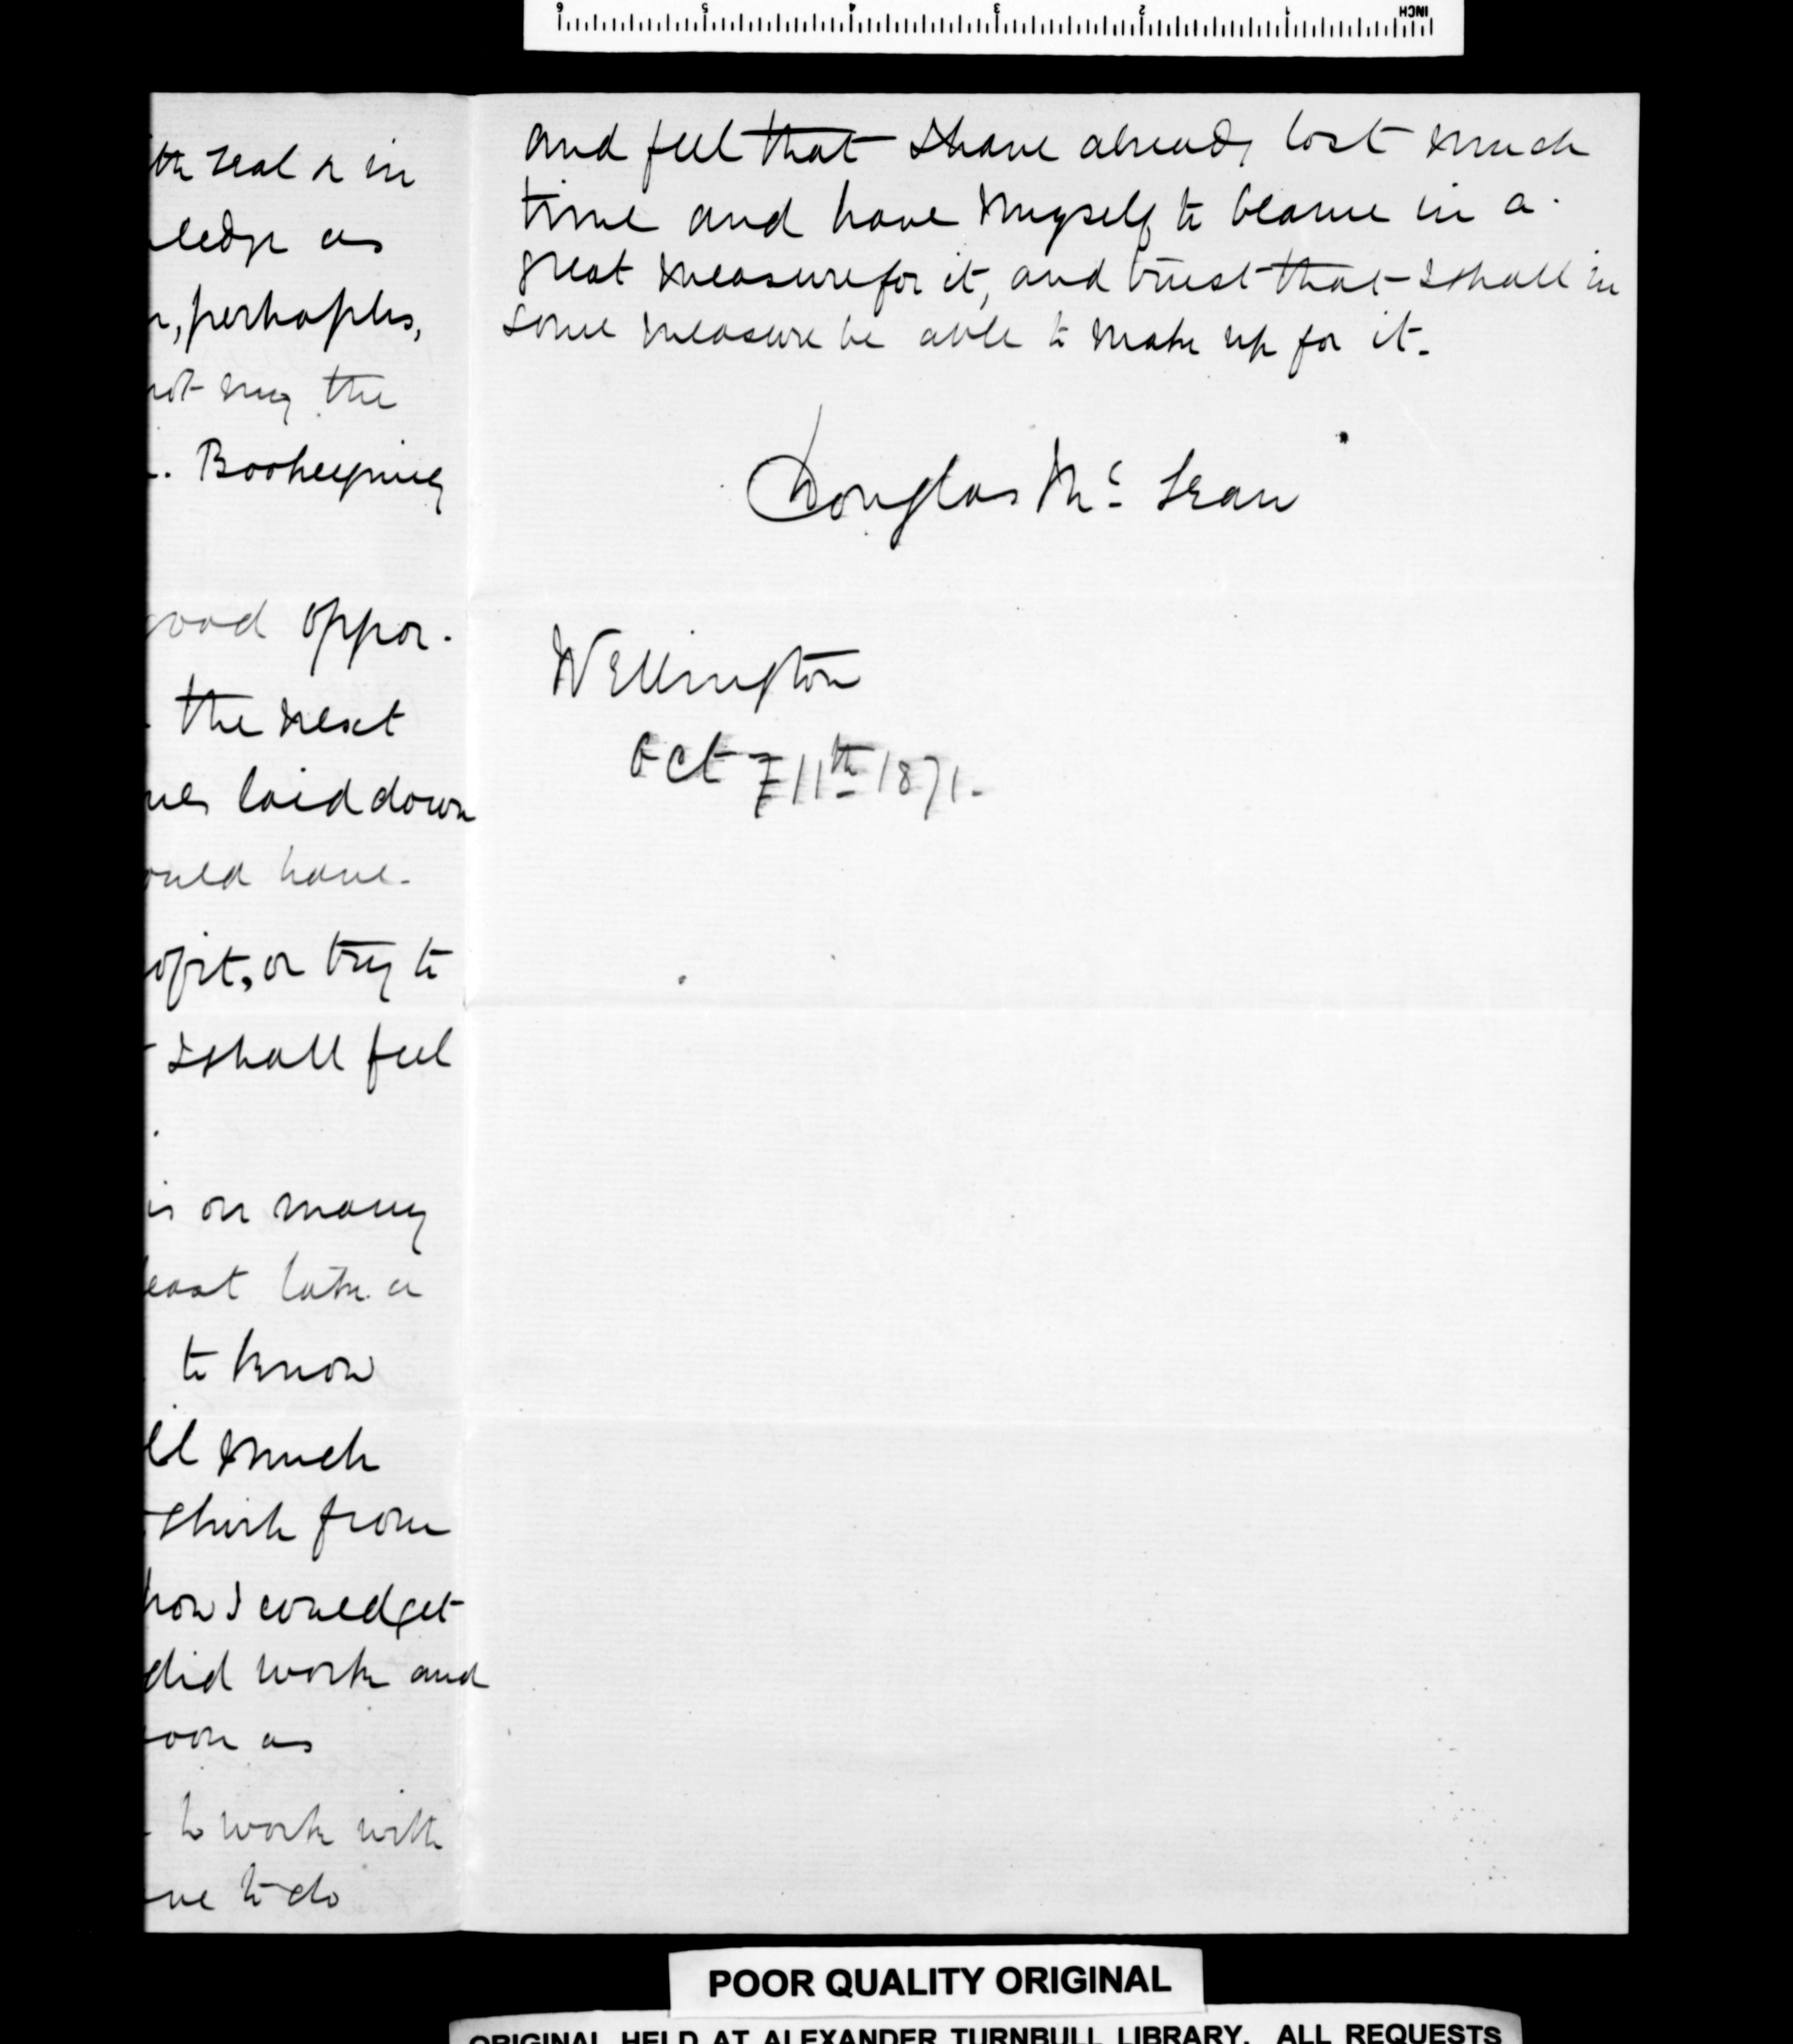 INCH
1 2 3 4 5 6
th zeal & in
ledge as
perhaphs,
not my the
Bookeeping
good oppor-
the next
laid down
ould have
ofit, or try to
I shall feel
is on many
least late a
to know
ll much
shirk from
how I could get
did work and
soon as
to work with
ve to do
and feel that I have already lost much
time and have myself to blame in a
great measure for it, and trust that I shall in
some measure be able to make up for it.
Douglas McLean
Wellington
Oct 11th 1871.
POOR QUALITY ORIGINAL
ORIGINAL HELD AT ALEXANDER TURNBULL LIBRARY. ALL REQUESTS